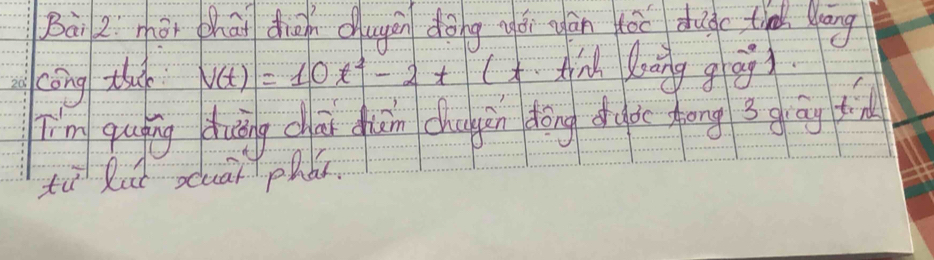 Bài 2: một chất điểm chuyển động với vận tốc được tính bằng
công thức: V(t) = 10t⁴ - 2t (t tính bằng giây).
Tìm quãng đường chất điểm chuyển động được trong 3 giây tính
từ lúc xuất phát.